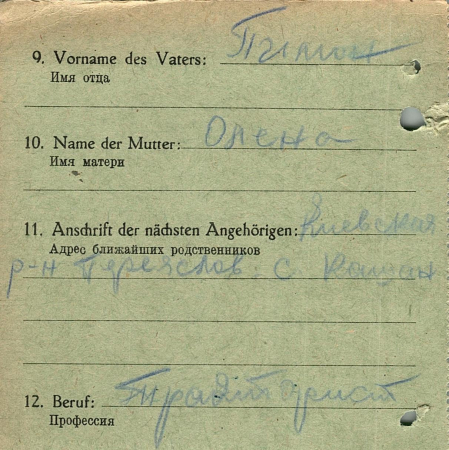 9. Vorname des Vaters: Пимон
Имя отца
10. Name der Mutter: Олена
Имя матери
11. Anschrift der nächsten Angehörigen: Киевская
Адрес ближайших родственников
р-н Переяслов. с.
12. Beruf: Трайторист
Профессия